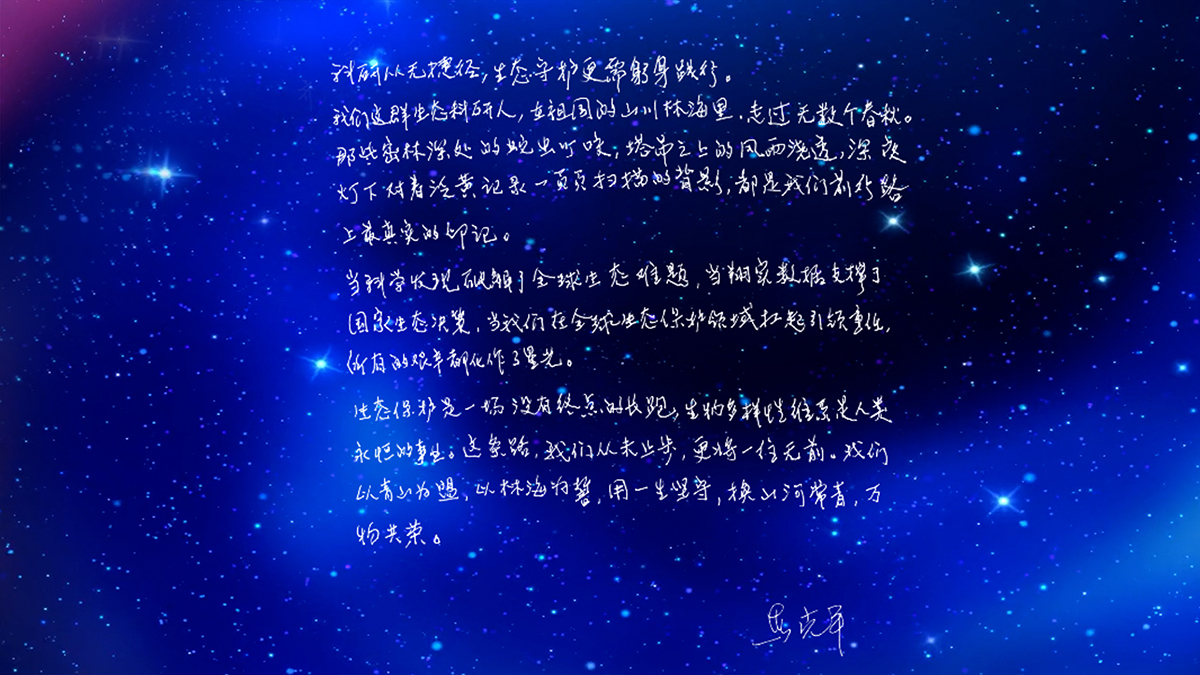 科研从无捷径，生态守护更需躬身践行。
我们这群生态科研人，在祖国的山川林海里，走过无数个春秋。
那些密林深处的蛇虫叮咬，塔吊之上的风雨浇透，深夜
灯下对着泛黄记录一页页扫描的背影，都是我们前行路
上最真实的印记。
当科学发现破解了全球生态难题，当翔实数据支撑了
国家生态决策，当我们在全球生态保护领域扛起引领重任，
所有的艰辛都化作了星光。
生态保护是一场没有终点的长跑，生物多样性维系是人类
永恒的事业。这条路，我们从未止步，更将一往无前。我们
以青山为盟，以林海为誓，用一生坚守，换山河常青，万
物共荣。
马克平